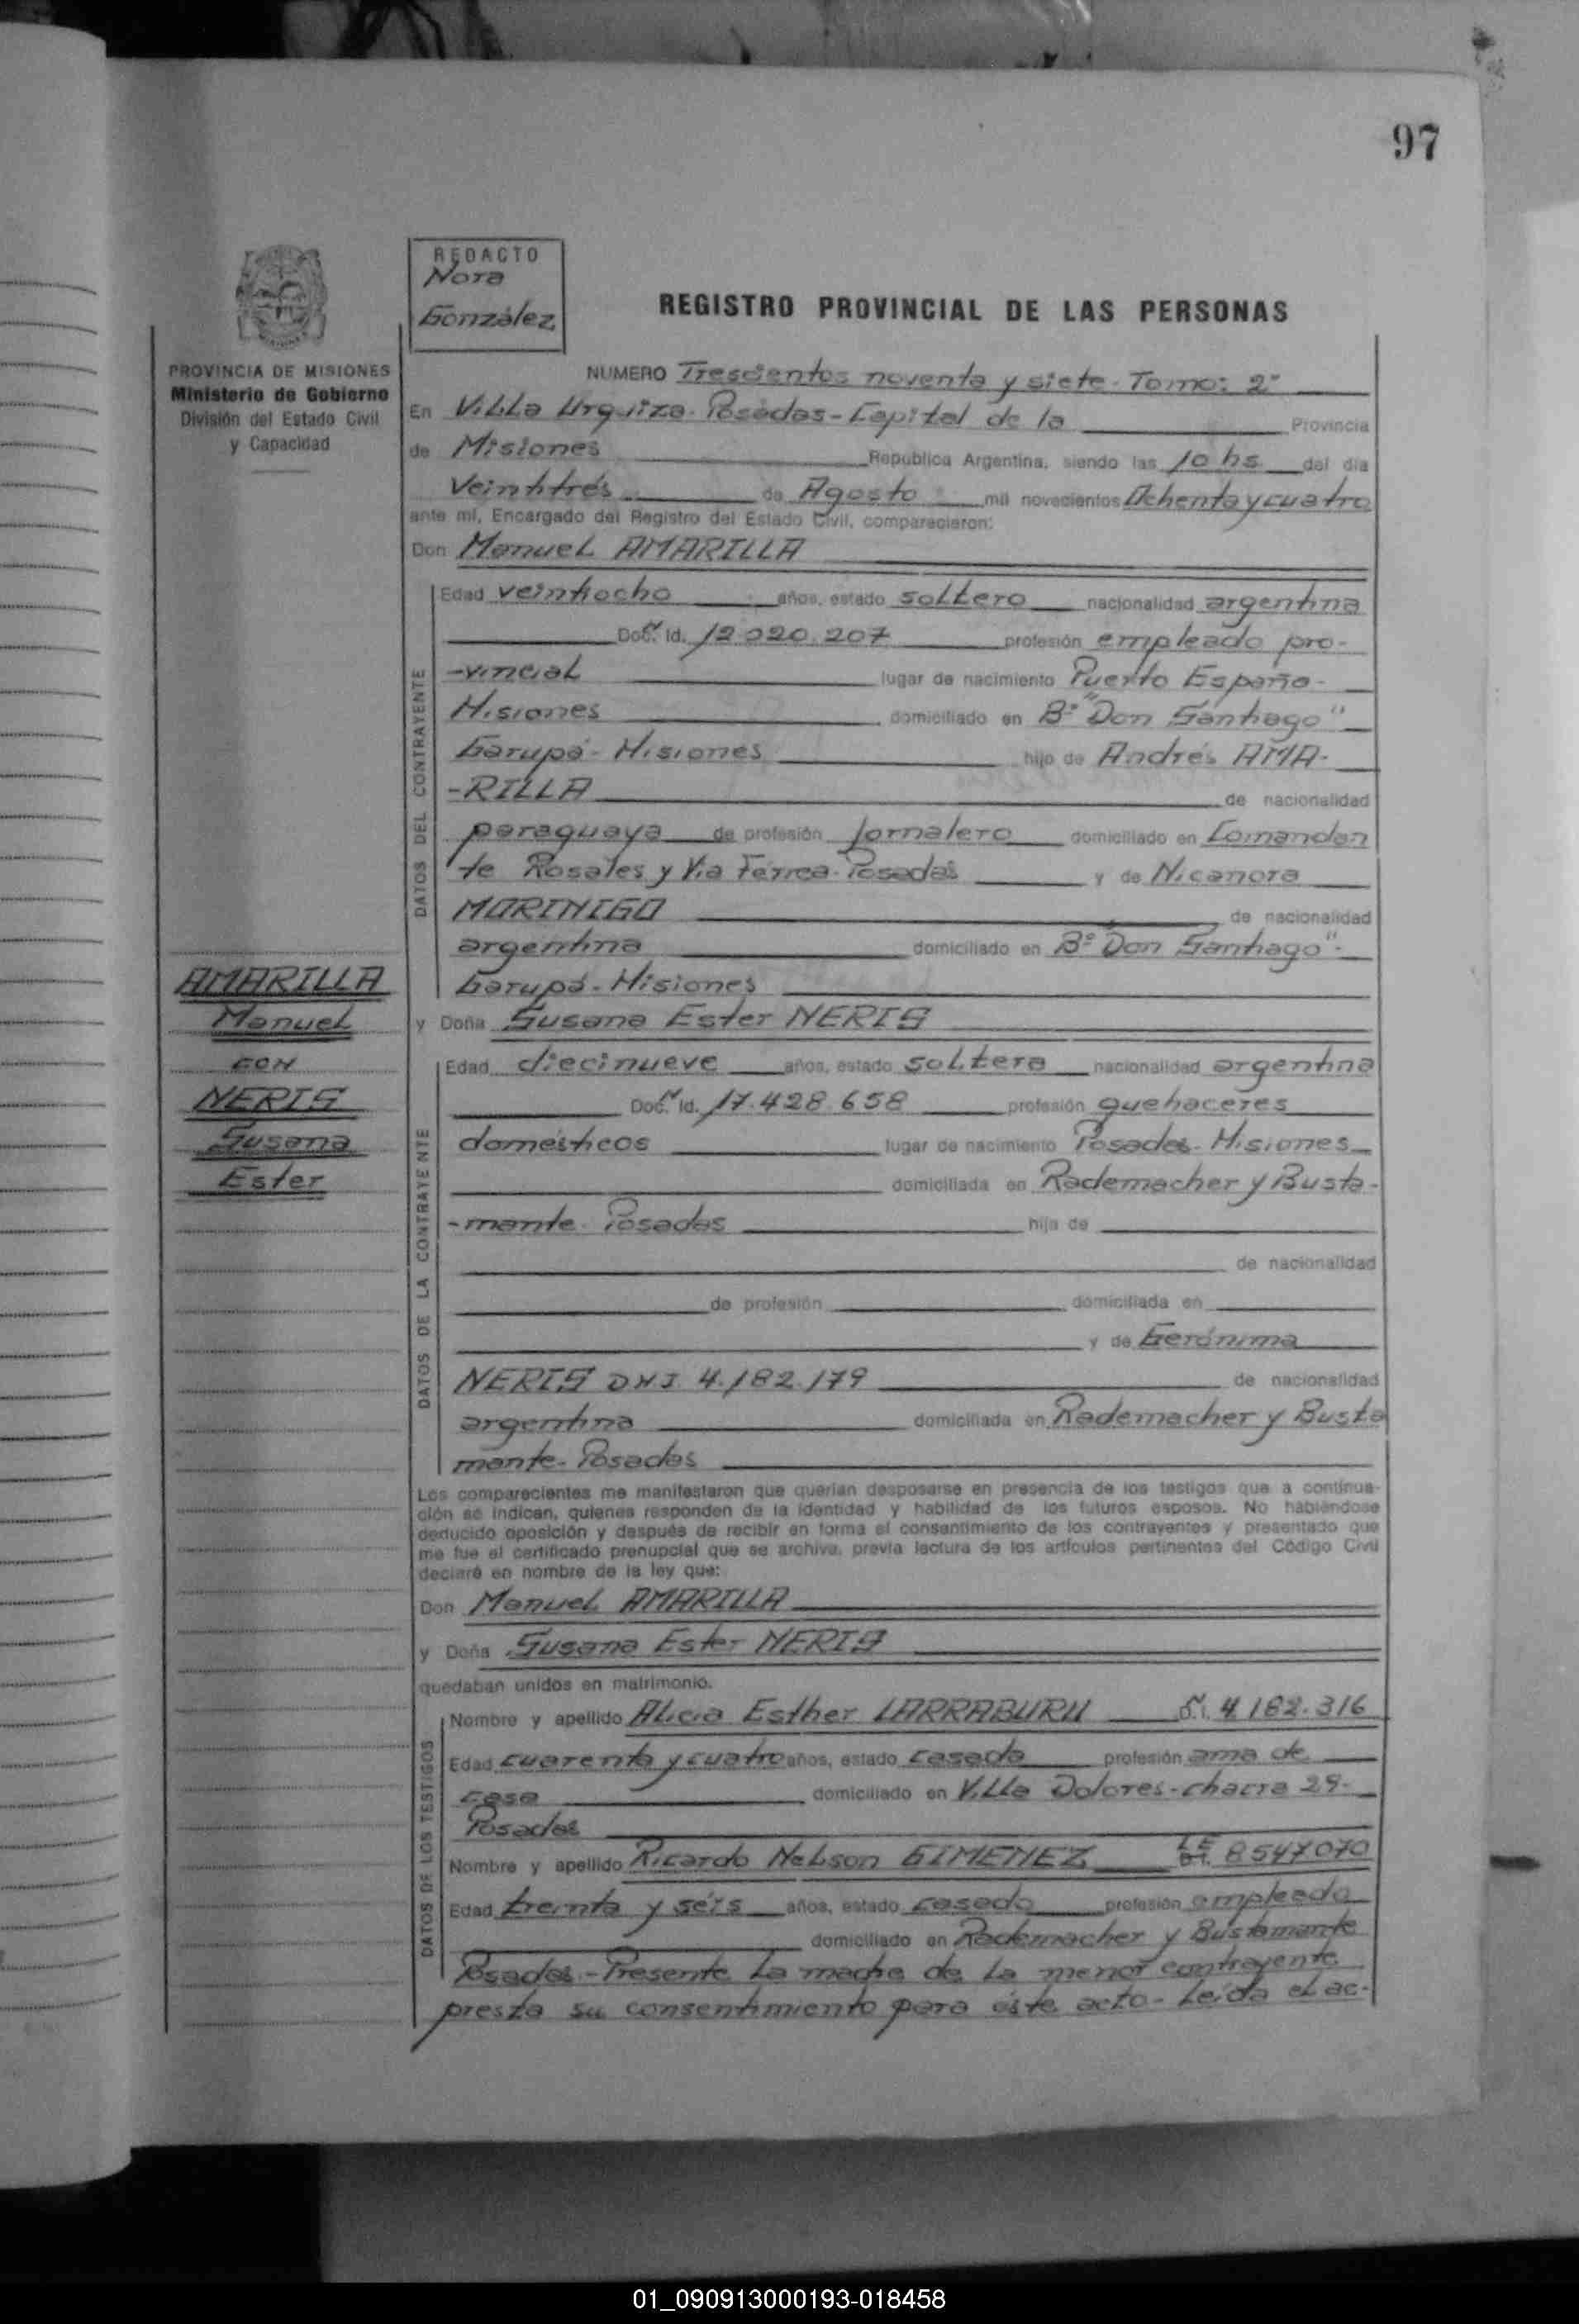 97
REDACTO
Nora
González
REGISTRO PROVINCIAL DE LAS PERSONAS
PROVINCIA DE MISIONES
Ministerio de Gobierno
División del Estado Civil
y Capacidad
NUMERO Trescientos noventa y siete - Tomo: 2º
En Villa Urquiza - Posadas - Capital de la Provincia
de Misiones República Argentina, siendo las 10 hs del día
veintitrés de Agosto mil novecientos Ochenta y cuatro
ante mí, Encargado del Registro del Estado Civil, comparecieron:
Don Manuel AMARILLA
DATOS DEL CONTRAYENTE
Edad veintiocho años, estado soltero nacionalidad argentina
Doc. Id. 12.020.207 profesión empleado pro-
-vincial lugar de nacimiento Puerto España -
Misiones domiciliado en Bº "Don Santiago"
Garupá - Misiones hijo de Andrés AMA-
-RILLA de nacionalidad
paraguaya de profesión Jornalero domiciliado en Comandan
te Rosales y Vía Férrea - Posadas y de Nicanora
MORINIGO de nacionalidad
argentina domiciliado en Bº "Don Santiago" -
Garupá - Misiones
AMARILLA
Manuel
CON
NERIS
Susana
Ester
y Doña Susana Ester NERIS
DATOS DE LA CONTRAYENTE
Edad diecinueve años, estado soltera nacionalidad argentina
Doc. Id. 17.428.658 profesión quehaceres
domésticos lugar de nacimiento Posadas - Misiones
domiciliada en Rademacher y Busta-
-mante - Posadas hija de
de nacionalidad
de profesión domiciliada en
y de Gerónima
NERIS DNI 4.182.179 de nacionalidad
argentina domiciliada en Rademacher y Busta
mante - Posadas
Los comparecientes me manifestaron que querían desposarse en presencia de los testigos que a continua-
ción se indican, quienes responden de la identidad y habilidad de los futuros esposos. No habiéndose
deducido oposición y después de recibir en forma el consentimiento de los contrayentes y presentado que
me fue el certificado prenupcial que se archiva, previa lectura de los artículos pertinentes del Código Civil
declaré en nombre de la ley que:
Don Manuel AMARILLA
y Doña Susana Ester NERIS
quedaban unidos en matrimonio.
DATOS DE LOS TESTIGOS
Nombre y apellido Alicia Esther LARRABURU D.I. 4.182.316
Edad cuarenta y cuatro años, estado casada profesión ama de
casa domiciliado en Villa Dolores - chacra 29 -
Posadas
Nombre y apellido Ricardo Nelson GIMENEZ LE D.I. 8547070
Edad treinta y séis años, estado casado profesión empleado
domiciliado en Rademacher y Bustamante
Posadas - Presente la madre de la menor contrayente
presta su consentimiento para éste acto - Leída el ac-
01_090913000193-018458